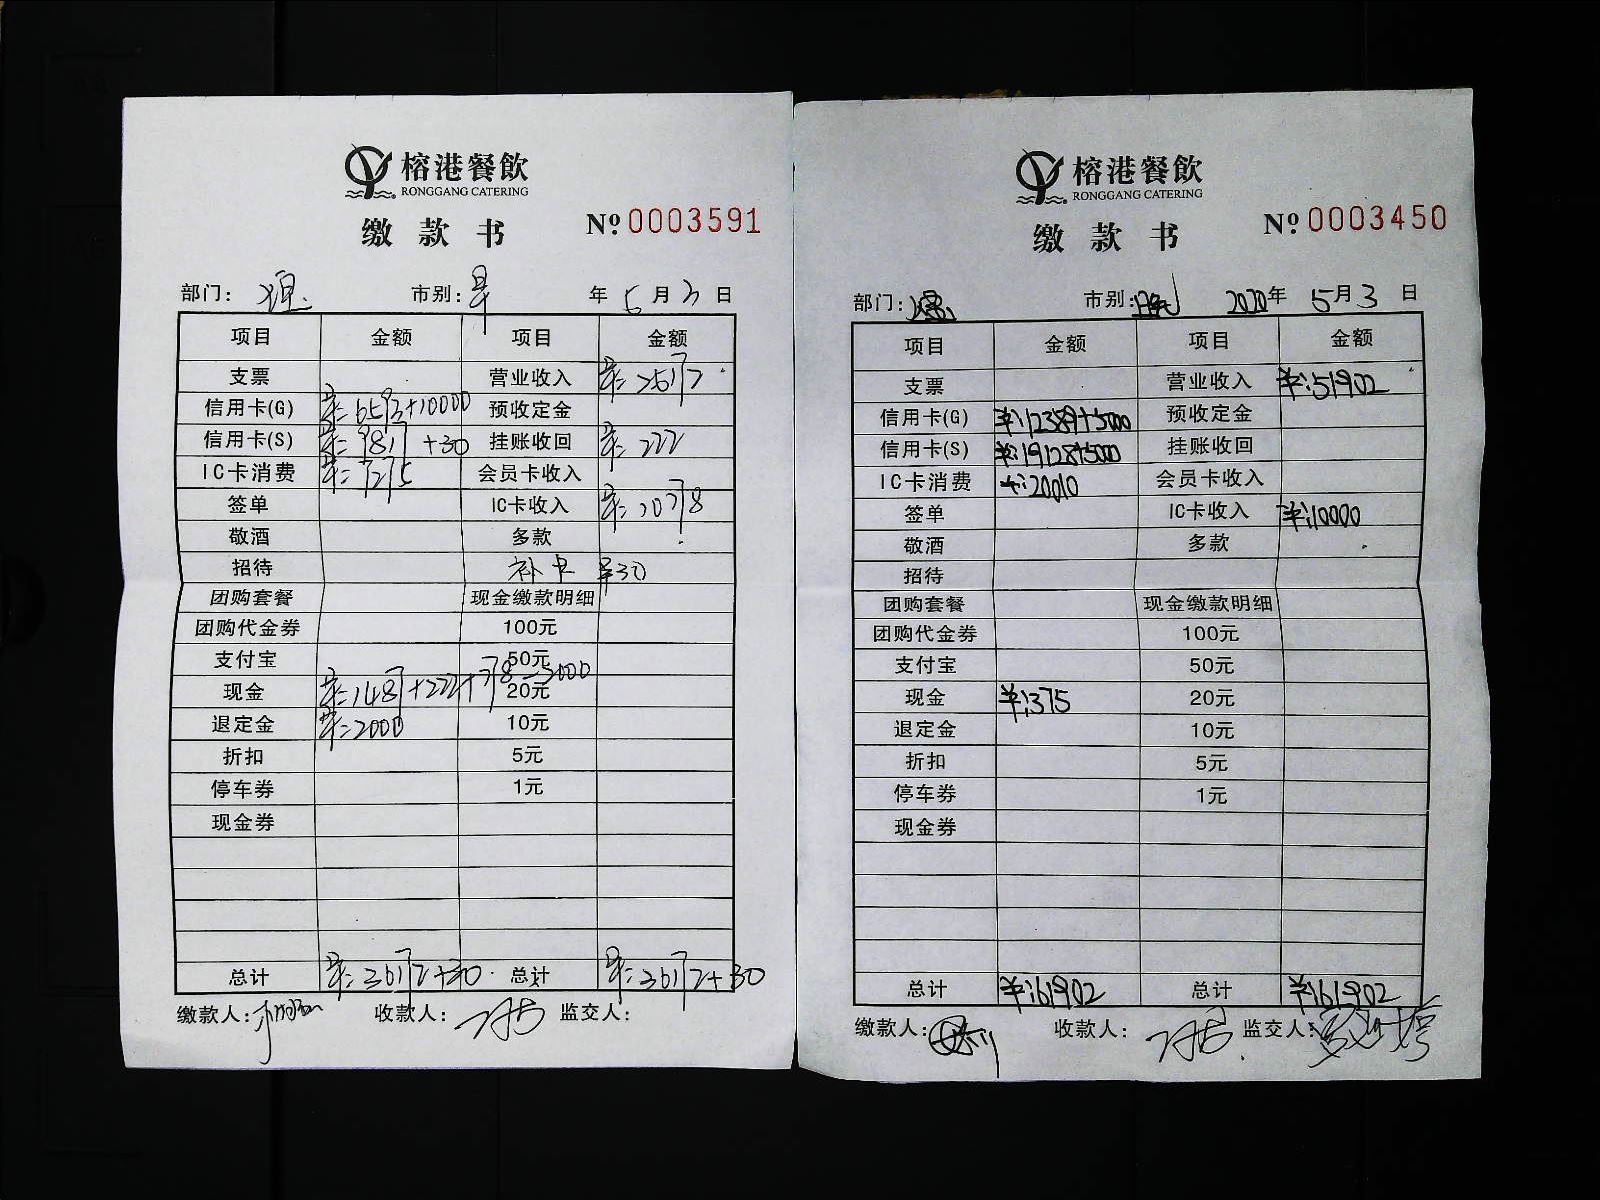 榕港餐飲
RONGGANG CATERING
缴款书 Nº 0003591
部门： 市别：早 年 5 月 3 日
项目 金额 项目 金额
支票 营业收入
信用卡(G) 预收定金
信用卡(S) 挂账收回 ¥:222
IC卡消费 ¥:7275 会员卡收入
签单 IC卡收入
敬酒 多款
招待 补卡 ¥30
团购套餐 现金缴款明细
团购代金券 100元
支付宝 50元
现金 20元
退定金 ¥:2000 10元
折扣 5元
停车券 1元
现金券
总计 总计
缴款人： 收款人： 监交人：
榕港餐飲
RONGGANG CATERING
缴款书 Nº 0003450
部门： 市别：晚 2020年 5月 3 日
项目 金额 项目 金额
支票 营业收入 ¥:51902
信用卡(G) ¥:12389+5000 预收定金
信用卡(S) ¥:19128+5000 挂账收回
IC卡消费 ¥:20010 会员卡收入
签单 IC卡收入 ¥:10000
敬酒 多款
招待
团购套餐 现金缴款明细
团购代金券 100元
支付宝 50元
现金 ¥:375 20元
退定金 10元
折扣 5元
停车券 1元
现金券
总计 ¥:61902 总计 ¥:61902
缴款人： 收款人： 监交人：